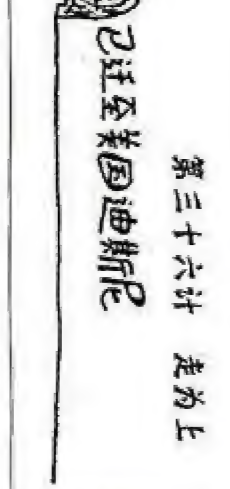 第三十六计 走为上
已迁至美国迪斯尼